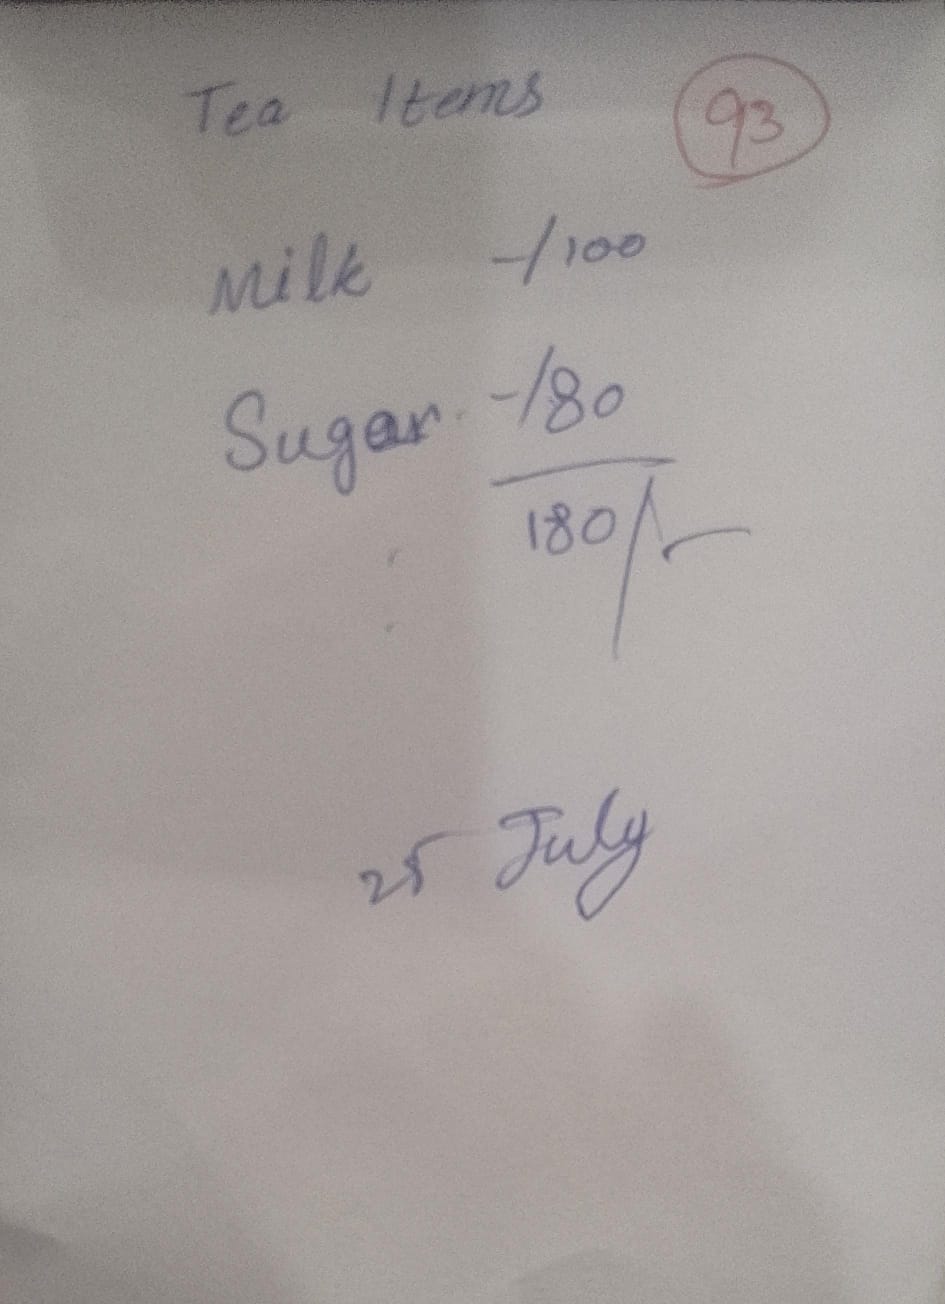 Tea Items 93
Milk -/100
Sugar -/80
180/-
25 July